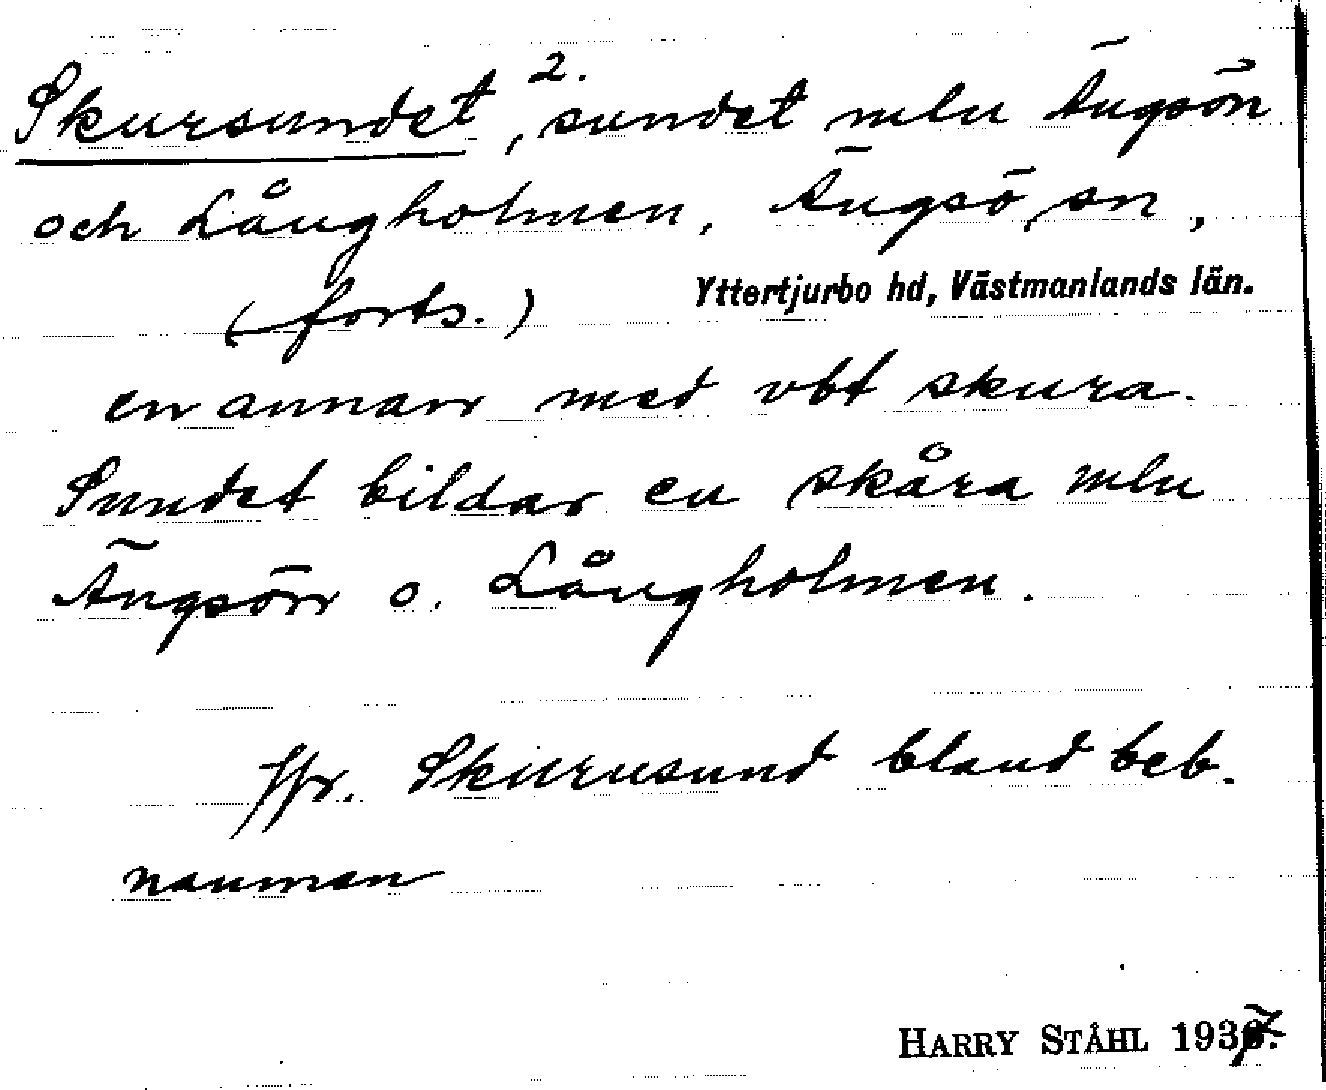 Skursundet, 2. sundet mlu Ängsön
och Långholmen, Ängsö sn,
(forts.) Yttertjurbo hd, Västmanlands län.
en annan med vbt skura.
Sundet bildar en skåra mlu
Ängsön o. Långholmen.
Jfr. Skurusund bland beb.
namnen
HARRY STÅHL 1937.